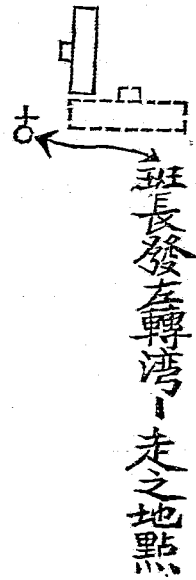 班長發左轉湾ー走之地點